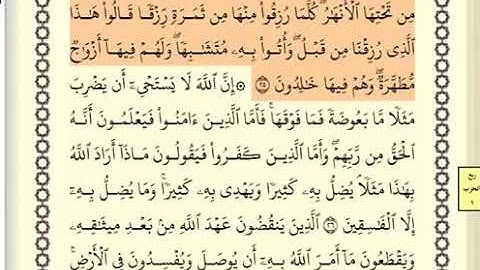 مِن تَحْتِهَا ٱلْأَنْهَـٰرُ ۖ كُلَّمَا رُزِقُوا۟ مِنْهَا مِن ثَمَرَةٍ رِّزْقًا قَالُوا۟ هَـٰذَا
ٱلَّذِى رُزِقْنَا مِن قَبْلُ ۖ وَأُتُوا۟ بِهِۦ مُتَشَـٰبِهًا ۖ وَلَهُمْ فِيهَآ أَزْوَٰجٌ
مُّطَهَّرَةٌ ۖ وَهُمْ فِيهَا خَـٰلِدُونَ ٢٥ ۞ إِنَّ ٱللَّهَ لَا يَسْتَحْىِۦٓ أَن يَضْرِبَ
مَثَلًا مَّا بَعُوضَةً فَمَا فَوْقَهَا ۚ فَأَمَّا ٱلَّذِينَ ءَامَنُوا۟ فَيَعْلَمُونَ أَنَّهُ
ٱلْحَقُّ مِن رَّبِّهِمْ ۖ وَأَمَّا ٱلَّذِينَ كَفَرُوا۟ فَيَقُولُونَ مَاذَآ أَرَادَ ٱللَّهُ
بِهَـٰذَا مَثَلًا ۘ يُضِلُّ بِهِۦ كَثِيرًا وَيَهْدِى بِهِۦ كَثِيرًا ۚ وَمَا يُضِلُّ بِهِۦٓ
إِلَّا ٱلْفَـٰسِقِينَ ٢٦ ٱلَّذِينَ يَنقُضُونَ عَهْدَ ٱللَّهِ مِنۢ بَعْدِ مِيثَـٰقِهِۦ
وَيَقْطَعُونَ مَآ أَمَرَ ٱللَّهُ بِهِۦٓ أَن يُوصَلَ وَيُفْسِدُونَ فِى ٱلْأَرْضِ ۚ
ربع
الحزب
١